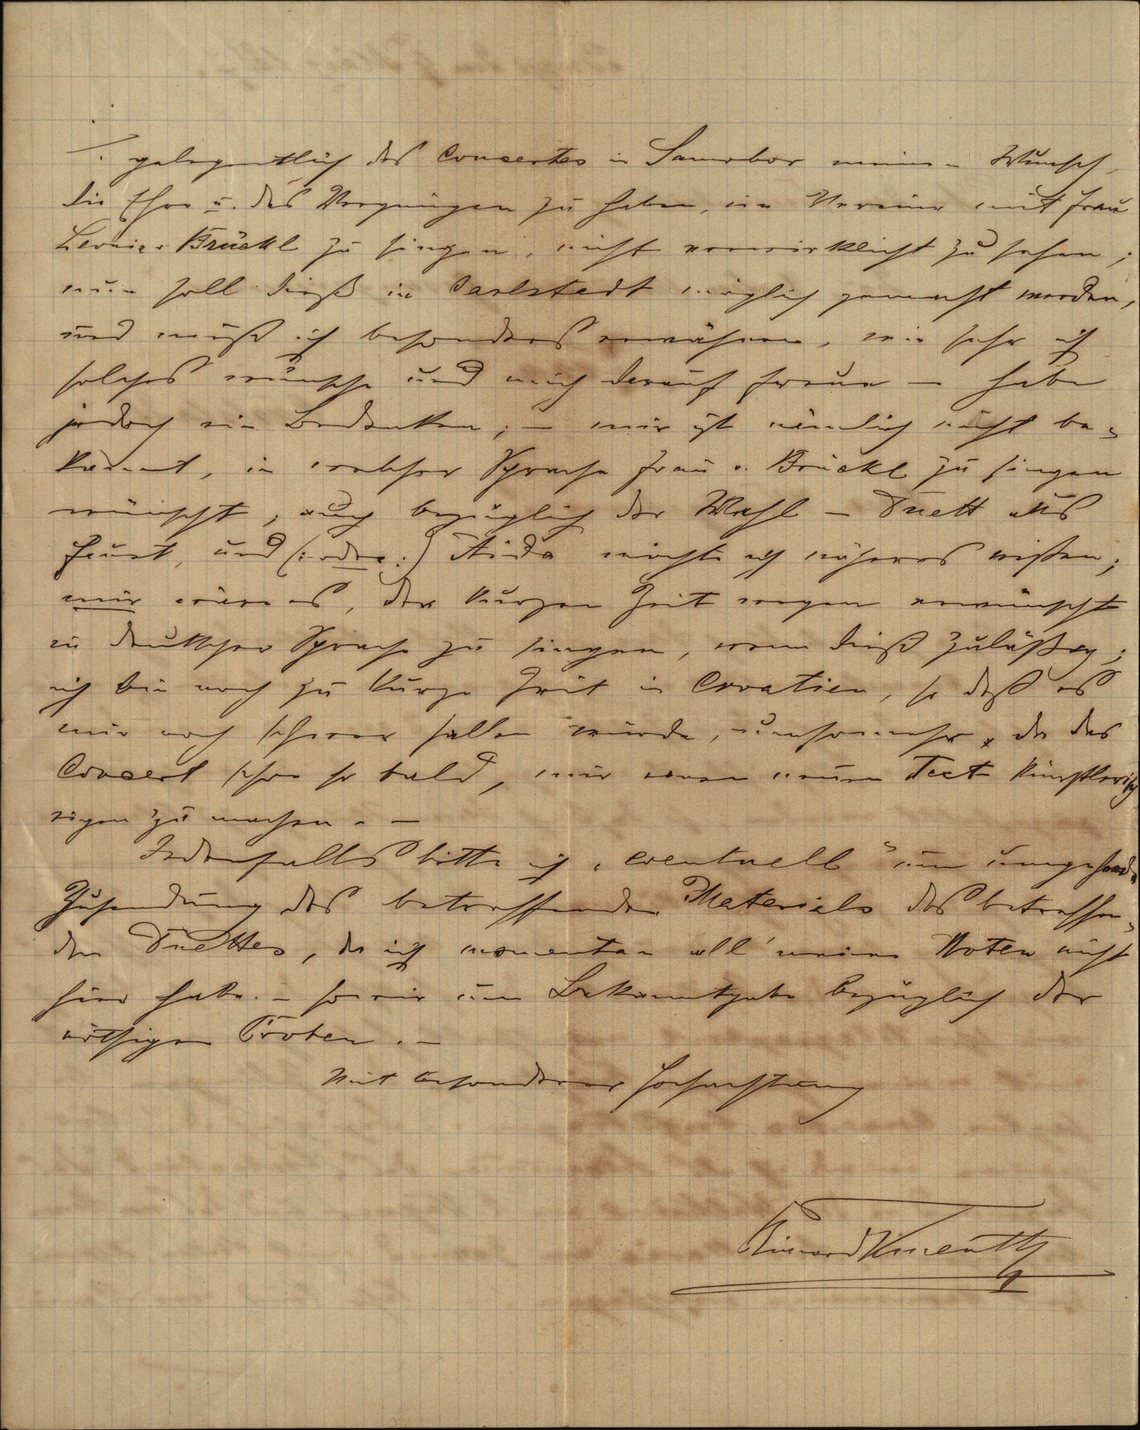 gelegentlich des Concertes in Samobor meinen Wunsch,
die Ehre u. das Vergnügen zu haben, im Vereine mit Frau
v. Brückl zu singen, nicht verwirklicht zu sehen;
nun soll dieß in Carlstadt möglich gemacht werden,
und muß ich besonders erwähnen, wie sehr ich
solches wünsche und mich darauf freue — habe
jedoch ein Bedenken; — mir ist nämlich nicht be-
kannt, in welcher Sprache Frau v. Brückl zu singen
wünscht, auch bezüglich der Wahl — Duett aus
Faust, und (: oder :) Aida möchte ich näheres wißen;
mir wäre es, der kurzen Zeit wegen erwünscht
in deutscher Sprache zu singen, wenn dieß zuläßig;
ich bin noch zu kurze Zeit in Croatien, so daß es
mir noch schwer fallen würde, umsomehr, da das
Concert schon so bald, mir einen neuen Text künstlerisch
eigen zu machen. —
Jedenfalls bitte ich, eventuell um umgehende
Zusendung des betreffenden Materials des betreffen-
den Duettes, da ich momentan all' meine Noten nicht
hier habe. — sowie um Bekanntgabe bezüglich der
nöthigen Proben. —
Mit besonderer Hochachtung